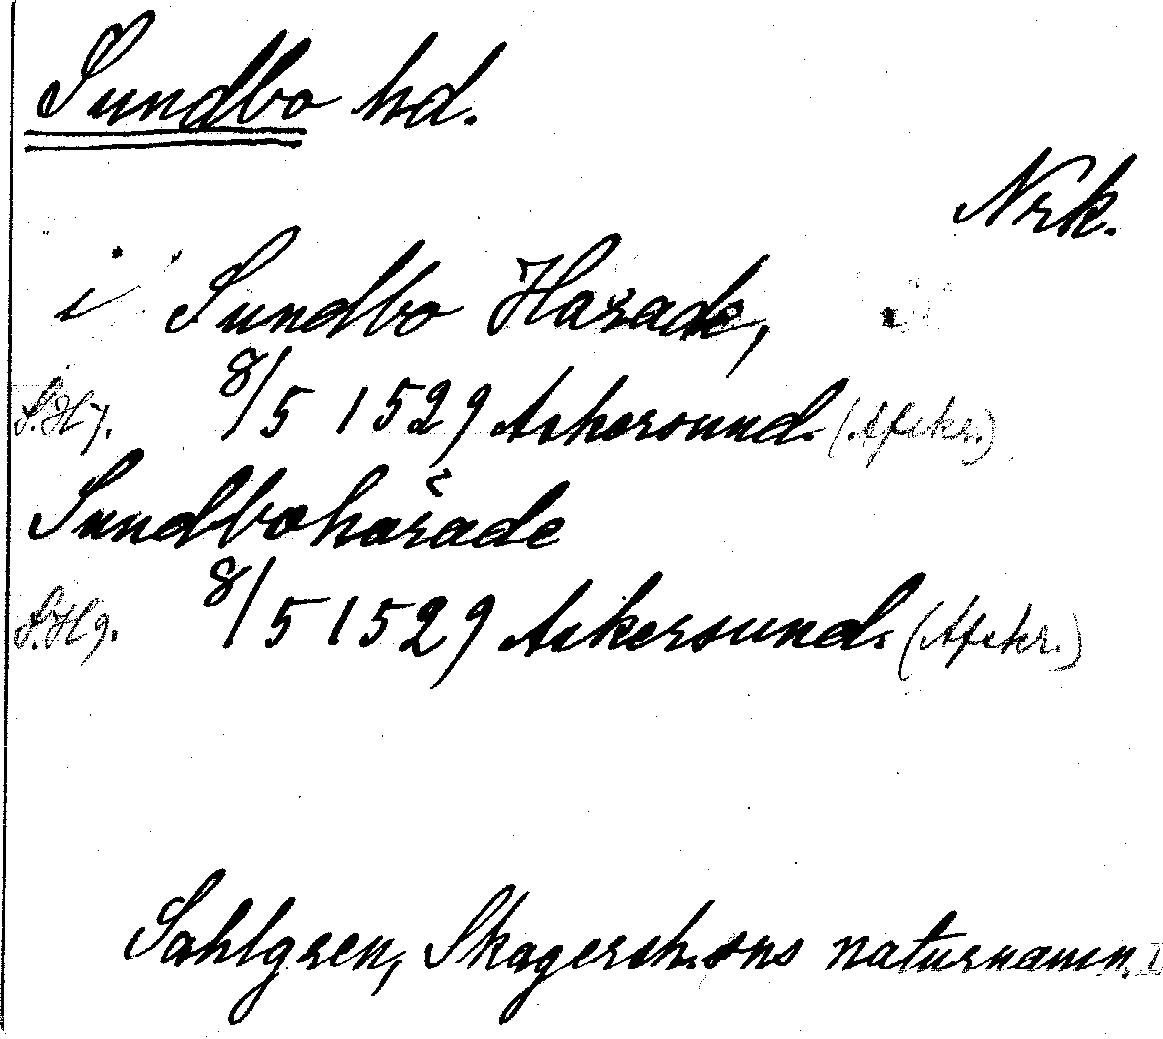 Sundbo hd.
Nrk.
i Sundbo Harade,
8/5 1529 Askersund. (Afskr.)
Sundbohårade
8/5 1529 Askersund. (Afskr.)
Sahlgren, Skagersh.sns naturnamn.